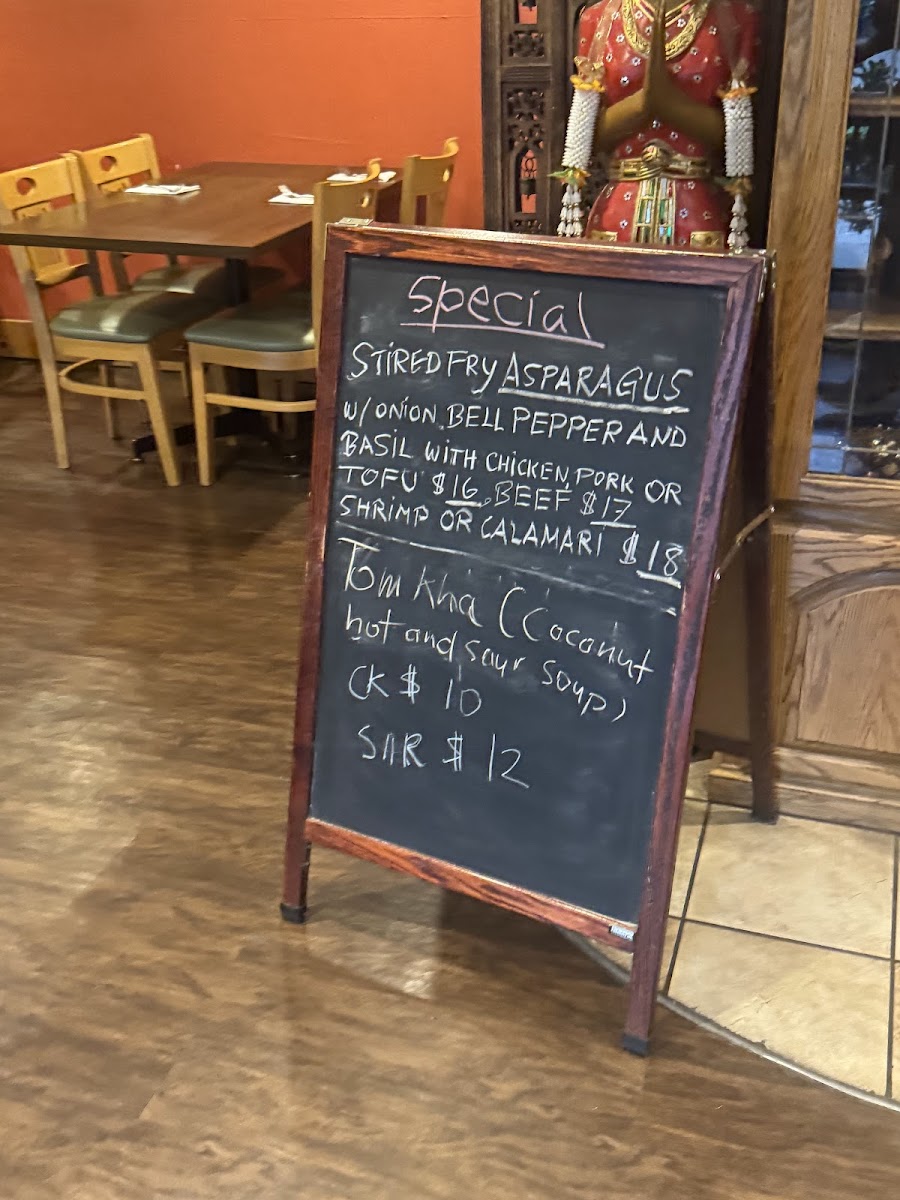 Special
STIRED FRY ASPARAGUS
W/ ONION, BELL PEPPER AND
BASIL WITH CHICKEN, PORK OR
TOFU $16, BEEF $17
SHRIMP OR CALAMARI $18
Tom Kha (Coconut
hot and sour soup)
CK $ 10
SHR $ 12